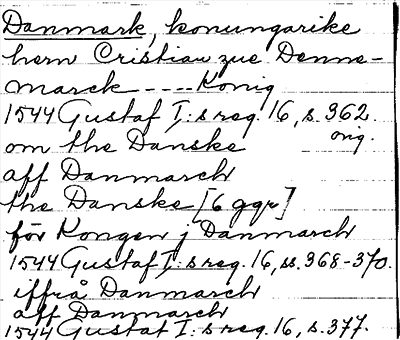 Danmark, konungarike
hern Cristian zue Denne-
marck ---- Konig
1544 Gustaf I:s reg. 16, s. 362.
om the Danske orig.
aff Danmarch
the Danske [6 ggr]
för Kongen j Danmarch
1544 Gustaf I:s reg. 16, ss. 368-370.
iffrå Danmarch
aff Danmarch
1544 Gustaf I:s reg. 16, s. 377.